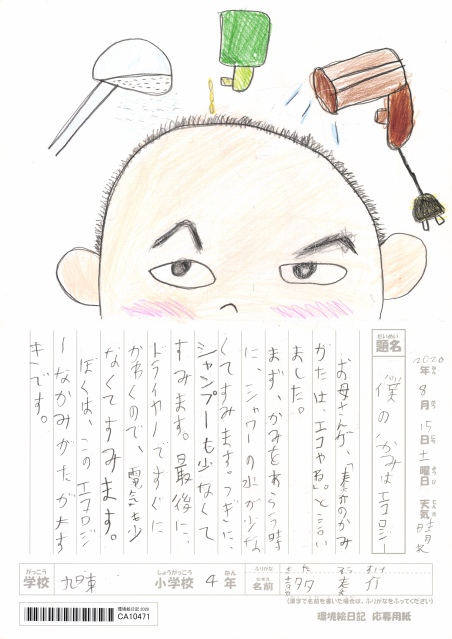 2020年 8月 15日 土曜日 天気 晴れ
だいめい
題名
僕のかみはエコロジー
お母さんが、「奏介のかみ
がたは、エコやね。」と言い
ました。
まず、かみをあらう時
に、シャワーの水が少な
くてすみます。つぎに、
シャンプーも少なくて
すみます。最後に、
ドライヤーですぐに
かわくので、電気も少
なくてすみます。
ぼくは、このエコロジ
ーなかみがたが大す
きです。
がっこう
学校
しょうがっこう
小学校
4
ねん
年
ふりがな
名前
(漢字で名前を書いた場合は、ふりがなをふってください)
環境絵日記 2020
CA10471
環境絵日記 応募用紙